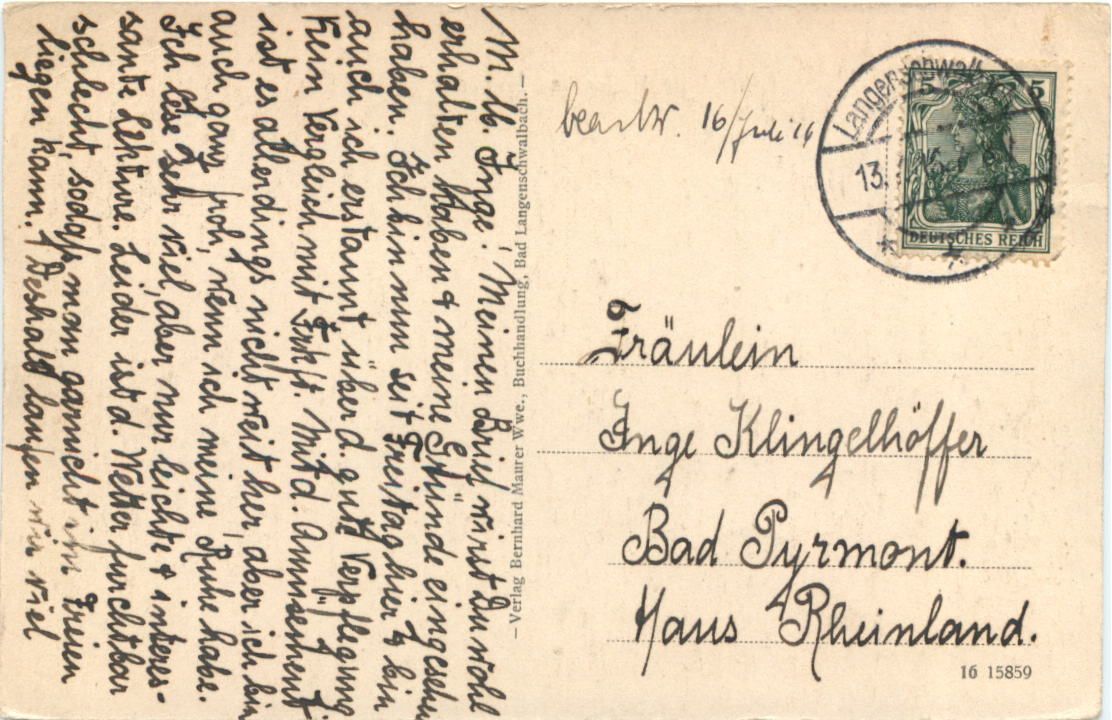 M. lb. Inge! Meinen Brief wirst Du wohl
erhalten haben & meine Gründe eingesehen
haben. Ich bin nun seit Freitag hier & bin
auch ich erstaunt über d. gute Verpflegung
Kein Vergleich mit Frkft. Mit d. Amüsement
ist es allerdings nicht weit her, aber ich bin
auch ganz froh, wenn ich meine Ruhe habe.
Ich lese sehr viel, aber nur leichte & interes-
sante Lektüre. Leider ist d. Wetter furchtbar
schlecht, sodass man garnicht im Freien
liegen kann. Deshalb laufen wir viel
– Verlag Bernhard Maurer Wwe., Buchhandlung, Bad Langenschwalbach. –
beantw. 16/Juli 16
Langenschwalbach
13.
5 5
DEUTSCHES REICH
Fräulein
Inge Klingelhöffer
Bad Pyrmont.
Haus Rheinland.
16 15859